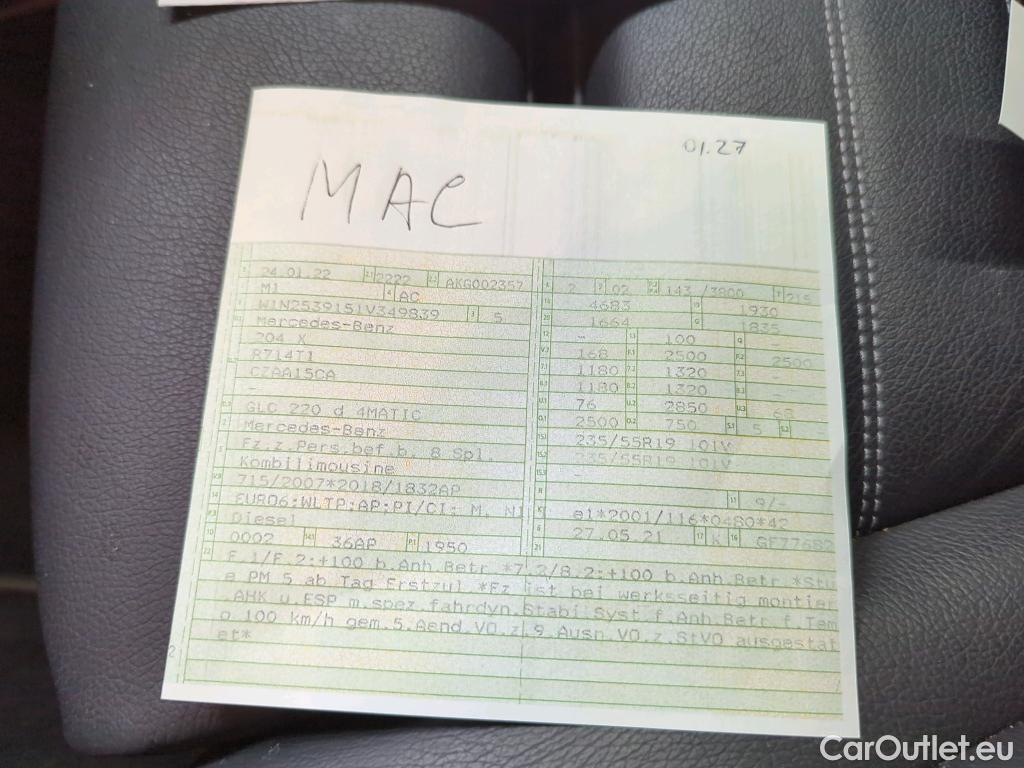 01.27
MAC
24.01.22 2222 AKG002357
M1 AC
W1N2539151V349839 5
Mercedes-Benz
204 X
R714T1
CZAA15CA
-
GLC 220 d 4MATIC
Mercedes-Benz
Fz.z.Pers.bef.b. 8 Spl.
Kombilimousine
715/2007*2018/1832AP
EURO6;WLTP;AP;PI/CI; M, N1
Diesel
0002 36AP 1950
2 02 143 /3800 215
4683 1930
1664 1835
- 100 -
168 2500 2500
1180 1320 -
1180 1320 -
76 2850 68
2500 750 5 -
235/55R19 101V
235/55R19 101V
-
9/-
e1*2001/116*0480*42
27.05.21 K GF77682
F.1/F.2:+100 b.Anh.Betr.*7.2/8.2:+100 b.Anh.Betr.*Stu
e PM 5 ab Tag Erstzul.*Fz ist bei werksseitig montier
.AHK u.ESP m.spez.fahrdyn.Stabi.Syst.f.Anh.Betr.f.Tem
o 100 km/h gem.5.Aend.VO.z.9.Ausn.VO.z.StVO ausgestat
et*
CarOutlet.eu